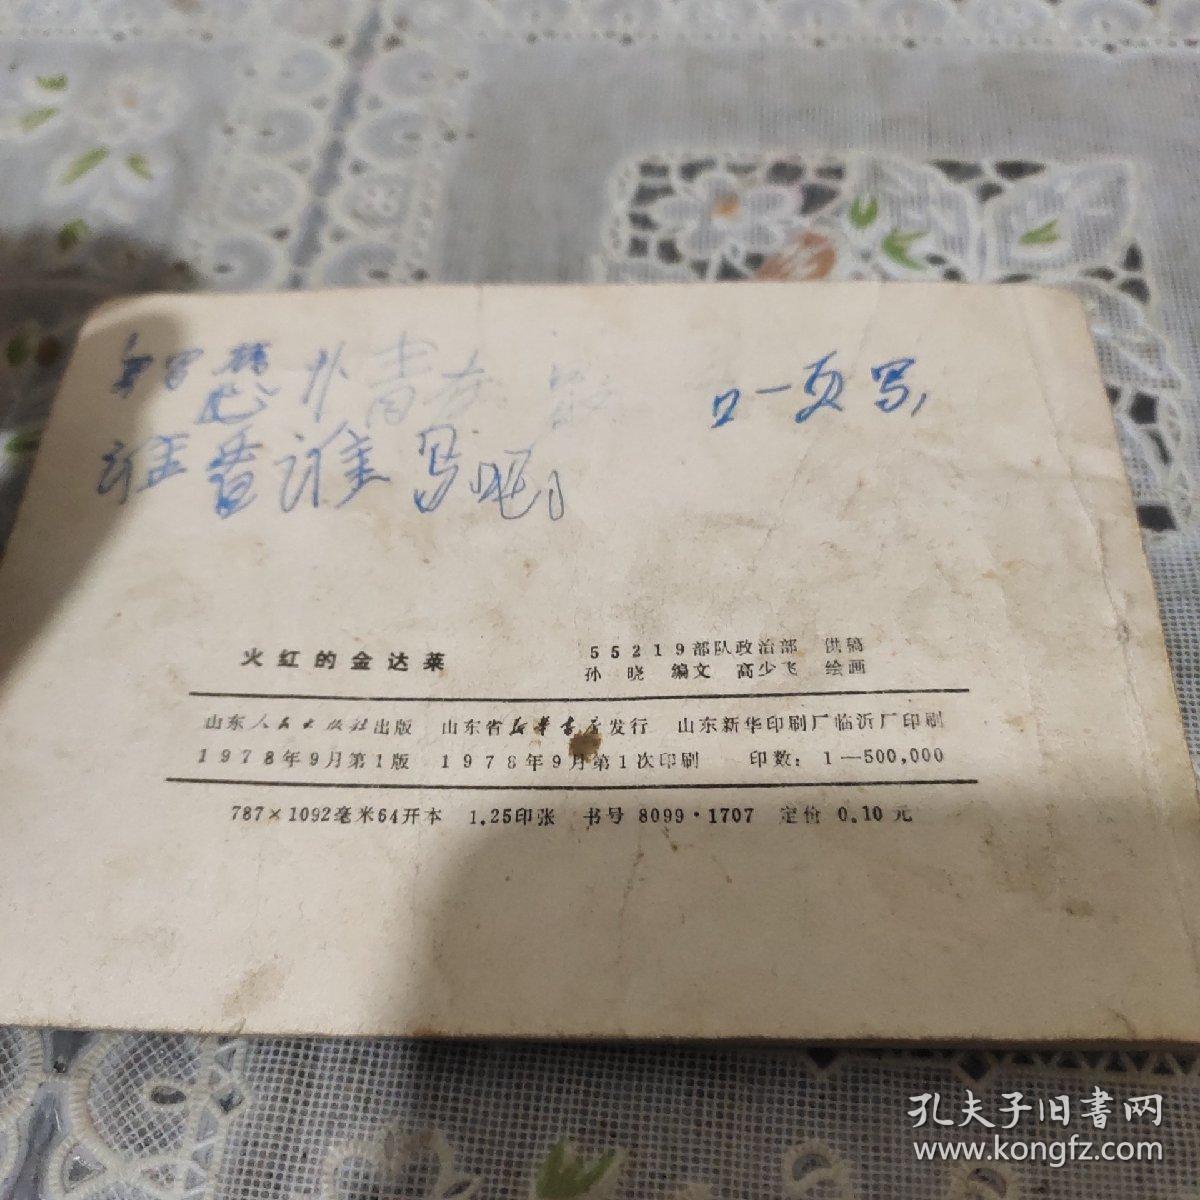 口一页写,
谁看谁写吧
火红的金达莱
55219部队政治部 供稿
孙晓 编文 高少飞 绘画
山东人民出版社出版 山东省新华书店发行 山东新华印刷厂临沂厂印刷
1978年9月第1版 1978年9月第1次印刷 印数:1—500,000
787×1092毫米64开本 1.25印张 书号 8099·1707 定价 0.10元
孔夫子旧書网
www.kongfz.com